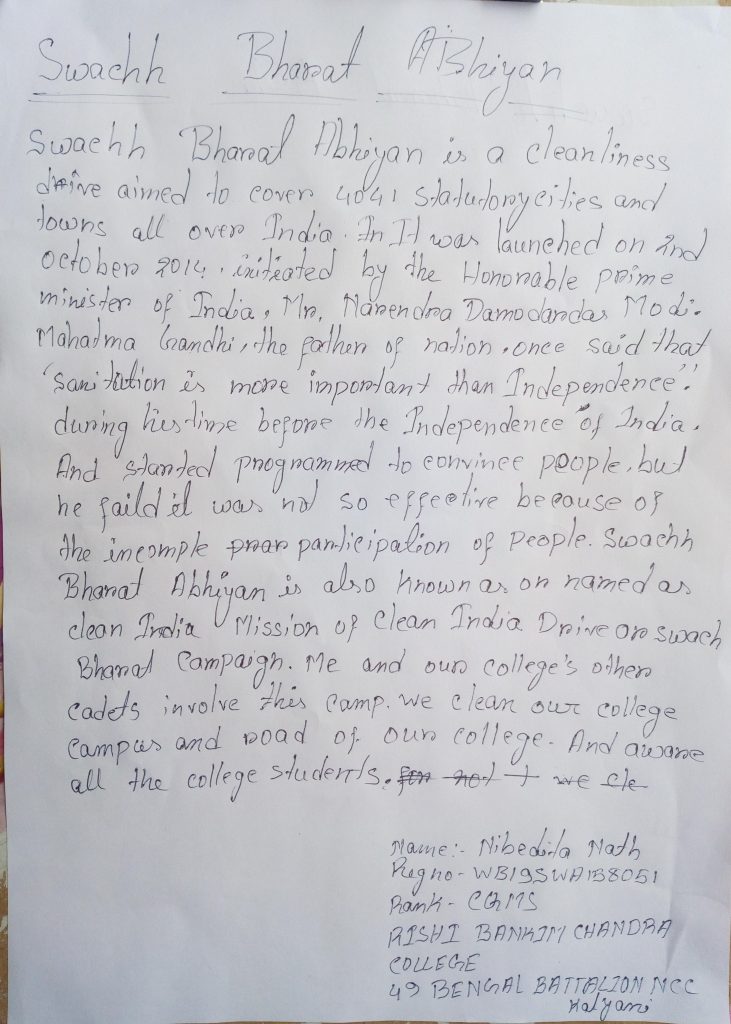 Swachh Bharat ABhiyan
Swachh Bharat Abhiyan is a cleanliness
drive aimed to cover 4041 Statutory cities and
towns all over India. In It was launched on 2nd
October 2014, initiated by the Honorable prime
minister of India, Mr, Narendra Damodardas Modi.
Mahatma Gandhi, the father of nation, once said that
"sanitation is more important than Independence".
during his time before the Independence of India.
And started programmed to convince people, but
he faild it was not so effective because of
the incomple prar participation of people. Swachh
Bharat Abhiyan is also known as or named as
clean India Mission of Clean India Drive or swach
Bharat Campaign. Me and our college's other
cadets involve this Camp. we clean our college
Campus and road of our college. And aware
all the college students. for not t we cle
Name:- Nibedita Nath
Regno- WB19SWA138051
Rank- CQMS
RISHI BANKIM CHANDRA
COLLEGE
49 BENGAL BATTALION NCC
Kalyani